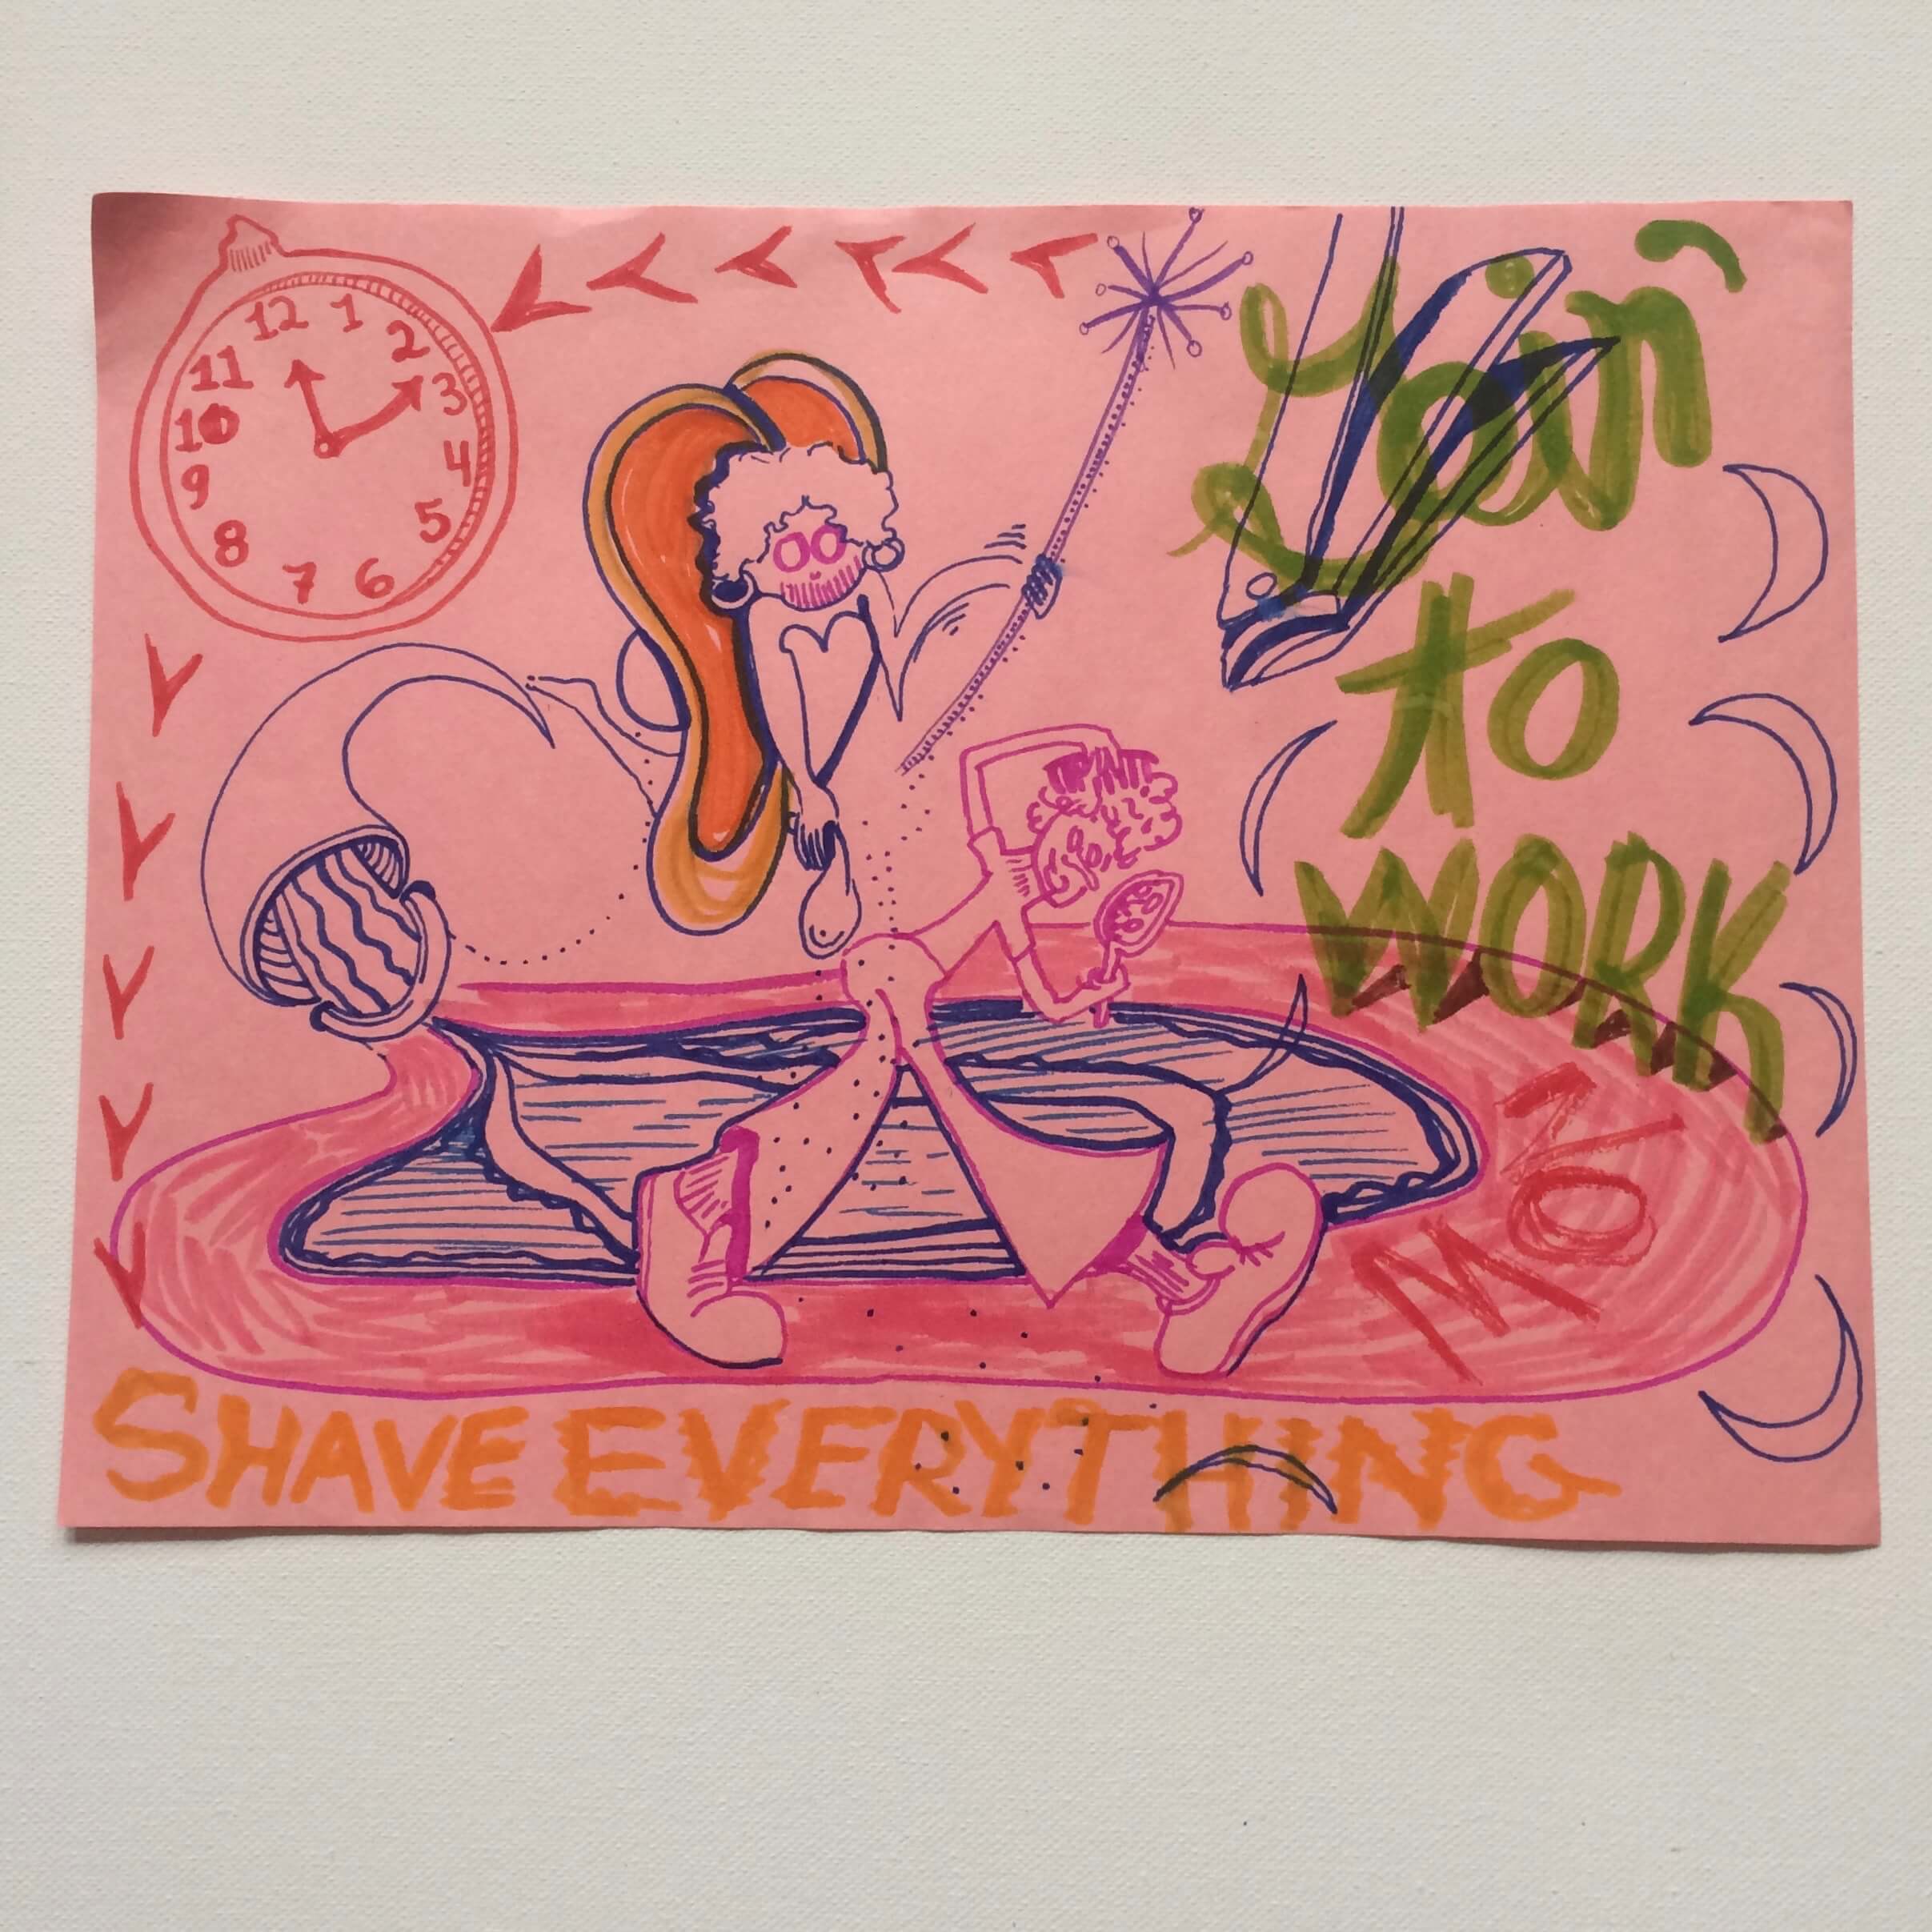 12 1 2 3 4 5 6 7 8 9 10 11
Goin'
to
WORK
NOW
SHAVE EVERYTHING